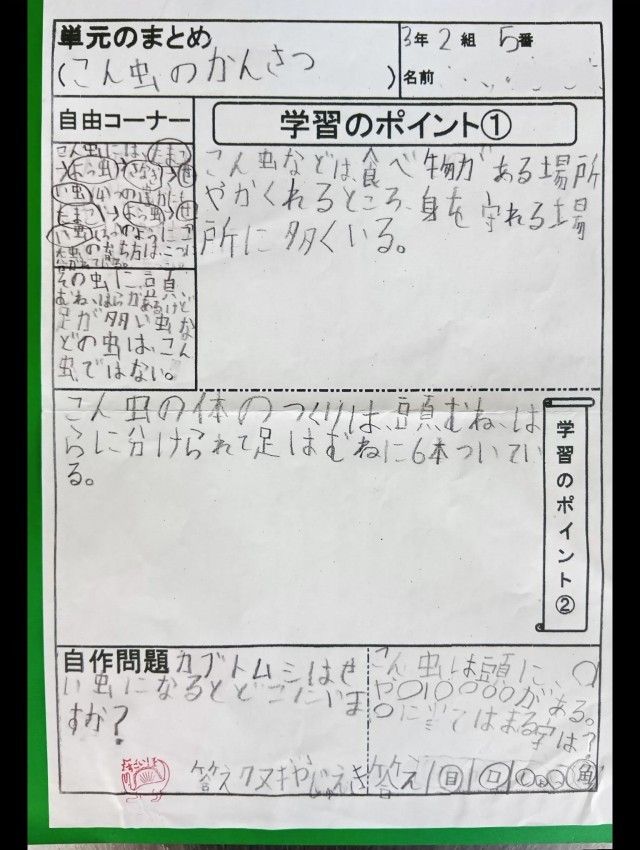 単元のまとめ
(こん虫のかんさつ)
3年 2組 5番
名前
自由コーナー
こん虫には、たまご
→よう虫→さなぎ→せ
い虫
たまご→よう虫→せ
い虫
その虫に、頭、
むね、はらがあるけど
足が多い虫な
どの虫は、こん
虫ではない。
学習のポイント①
こん虫などは、食べ物がある場所
やかくれるところ、身を守れる場
所に多くいる。
こん虫の体のつくりは、頭、むね、は
らに分けられて足はむねに6本ついてい
る。
学習のポイント②
自作問題 カブトムシはせ
い虫になるとどこにいま
すか?
答え クヌギやじゅえき
こん虫は頭に、〇
や〇1〇〇〇〇がある。
〇に当てはまる字は?
答え 目 口 しょっ 角